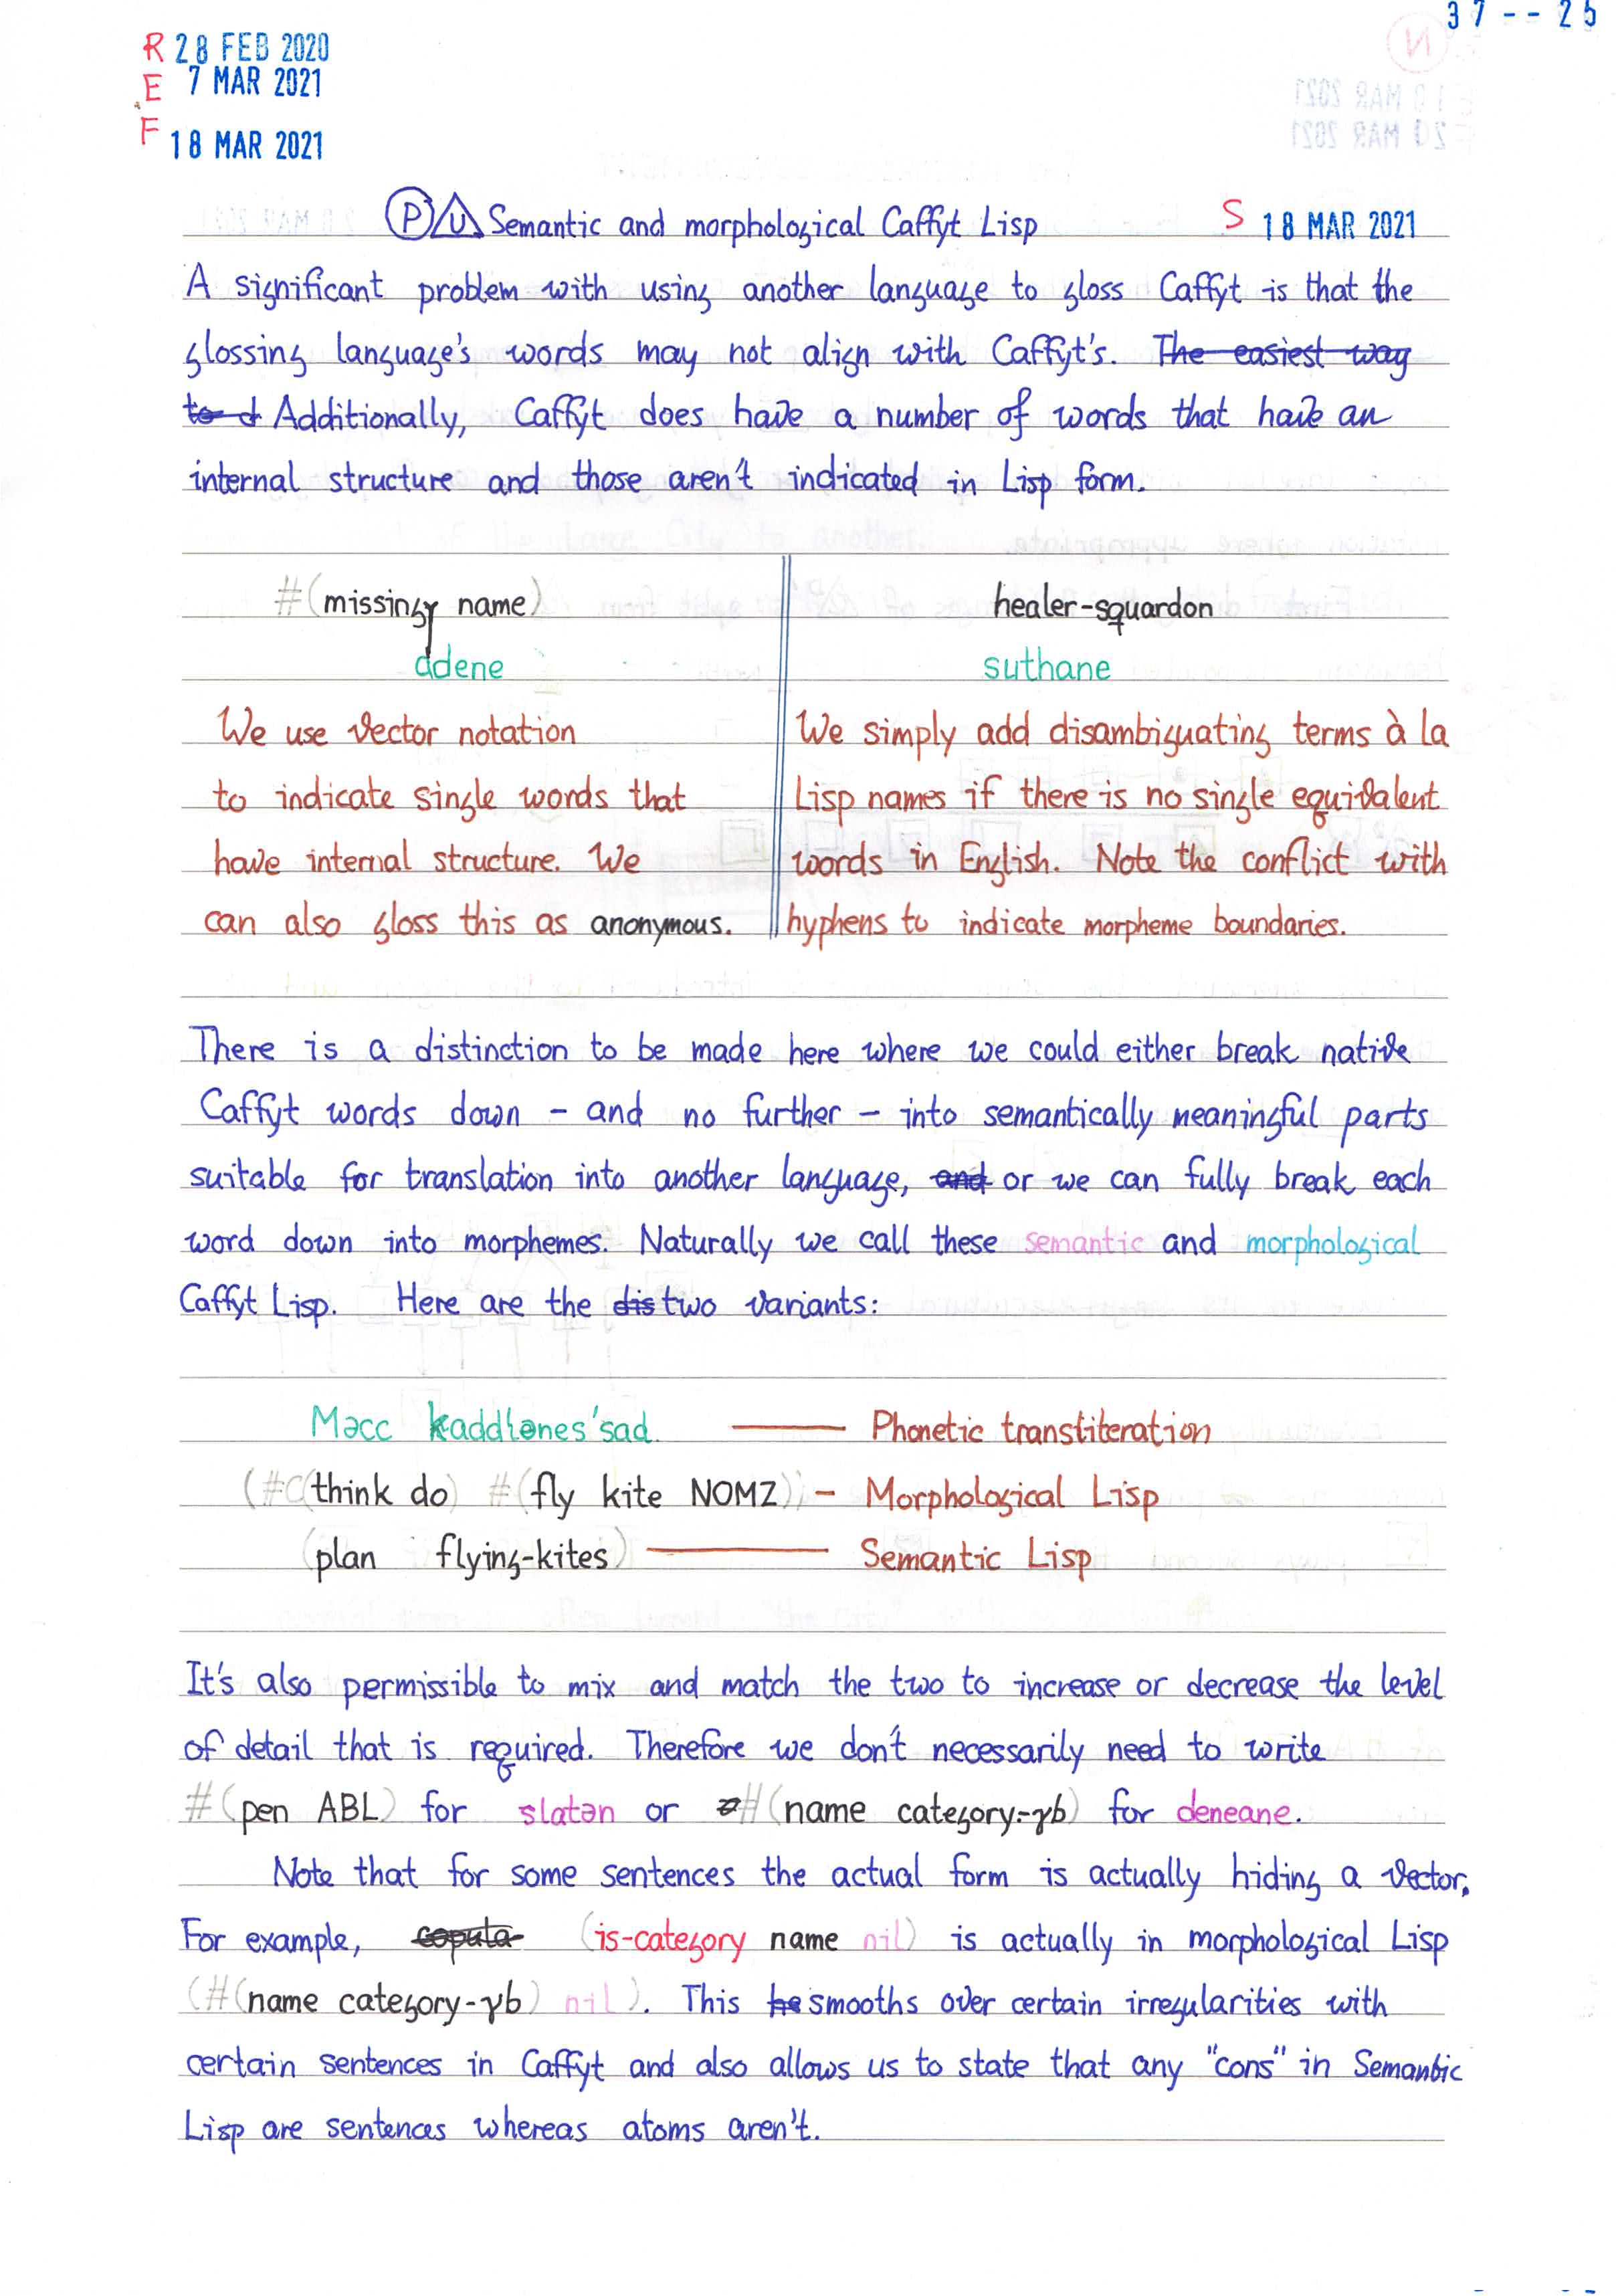 37--25
R 28 FEB 2020
E 7 MAR 2021
F 18 MAR 2021
P U Semantic and morphological Caffyt Lisp S 18 MAR 2021
A significant problem with using another language to gloss Caffyt is that the
glossing language's words may not align with Caffyt's. The easiest way
to d Additionally, Caffyt does have a number of words that have an
internal structure and those aren't indicated in Lisp form.
#(missing name)
adene
We use vector notation
to indicate single words that
have internal structure. We
can also gloss this as anonymous.
healer-squardon
suthane
We simply add disambiguating terms à la
Lisp names if there is no single equivalent
words in English. Note the conflict with
hyphens to indicate morpheme boundaries.
There is a distinction to be made here where we could either break native
Caffyt words down – and no further – into semantically meaningful parts
suitable for translation into another language, and or we can fully break each
word down into morphemes. Naturally we call these semantic and morphological
Caffyt Lisp. Here are the dis two variants:
Məcc kaddlənes'sad — Phonetic transliteration
(#(think do) #(fly kite NOMZ)) – Morphological Lisp
(plan flying-kites) — Semantic Lisp
It's also permissible to mix and match the two to increase or decrease the level
of detail that is required. Therefore we don't necessarily need to write
#(pen ABL) for slatən or #(name category-γb) for deneane.
Note that for some sentences the actual form is actually hiding a vector.
For example, copula (is-category name nil) is actually in morphological Lisp
(#(name category-γb) nil). This he smooths over certain irregularities with
certain sentences in Caffyt and also allows us to state that any "cons" in Semantic
Lisp are sentences whereas atoms aren't.